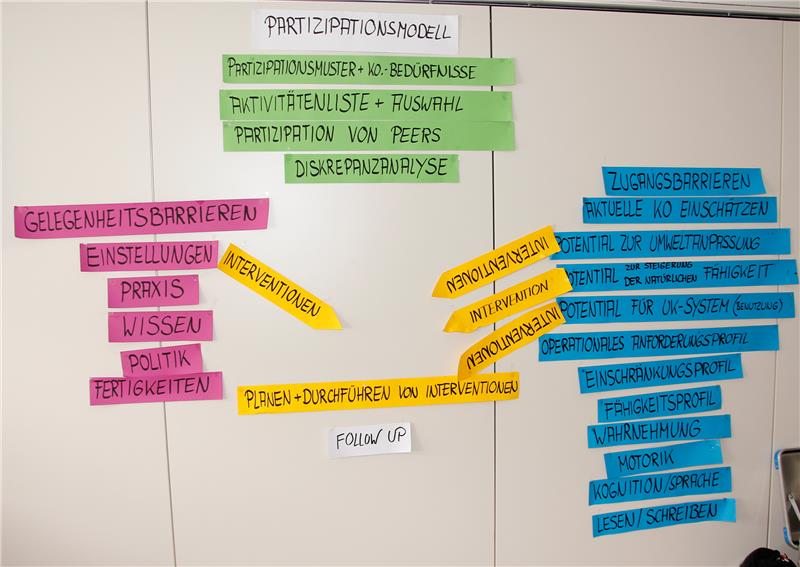 PARTIZIPATIONSMODELL
PARTIZIPATIONSMUSTER + KO.-BEDÜRFNISSE
AKTIVITÄTENLISTE + AUSWAHL
PARTIZIPATION VON PEERS
DISKREPANZANALYSE
GELEGENHEITSBARRIEREN
EINSTELLUNGEN
PRAXIS
WISSEN
POLITIK
FERTIGKEITEN
INTERVENTIONEN
INTERVENTIONEN
INTERVENTION
INTERVENTIONEN
PLANEN + DURCHFÜHREN VON INTERVENTIONEN
FOLLOW UP
ZUGANGSBARRIEREN
AKTUELLE KO EINSCHÄTZEN
POTENTIAL ZUR UMWELTANPASSUNG
POTENTIAL ZUR STEIGERUNG DER NATÜRLICHEN FÄHIGKEIT
POTENTIAL FÜR UK-SYSTEM (BENUTZUNG)
OPERATIONALES ANFORDERUNGSPROFIL
EINSCHRÄNKUNGSPROFIL
FÄHIGKEITSPROFIL
WAHRNEHMUNG
MOTORIK
KOGNITION/SPRACHE
LESEN/SCHREIBEN